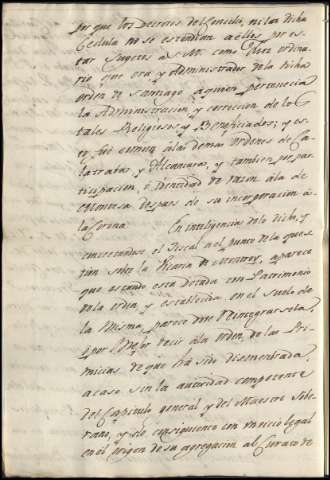 por que los decretos del Consejo, ni la dicha
Cedula no se estendian a ellos por es-
tar sugetos a S. M. como Juez ordina-
rio que era y Administrador de la dicha
orden de Santiago a quien pertenecia
la Administracion y correccion de los
tales Religiosos y Beneficiados; y es-
to fue a las demas ordenes de Ca-
latrava y Alcantara, y tambien por par-
ticipacion, è identidad de razon ala de
Montesa despues de su incorporacion à
la Corona. En inteligencia delo dicho, y
contrayendose el Fiscal al punto dela ques-
tion sobre la Vicaria de Montroy, aparece
que estando esta dotada con Patrimonio
dela orden y establecida en el suelo de
la misma, parece deve Reintegrarsela,
ò por mejor decir ala orden, de las Pri-
micias de que ha sido desmembrada,
acaso sin la autoridad competente
del Capitulo general y del Maestre Sobe-
rano, y de consiguiente con vicio legal
en el origen de su agregacion al Curato de